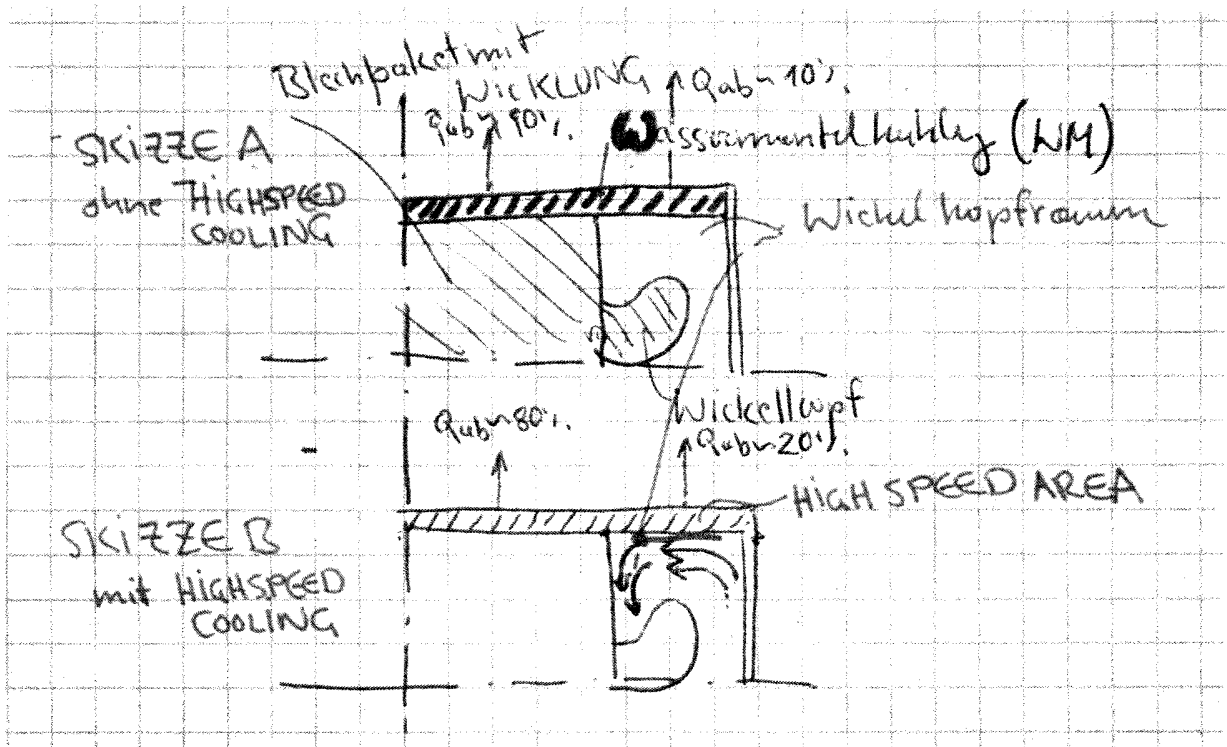 Blechpaket mit
WICKLUNG
Qab ~ 10%.
Qab ~ 90%.
Wassermantelkühlg (WM)
SKIZZE A
ohne HIGHSPEED
COOLING
Wickelkopfraum
Wickelkopf
Qab ~ 80%.
Qab ~ 20%.
HIGH SPEED AREA
SKIZZE B
mit HIGHSPEED
COOLING